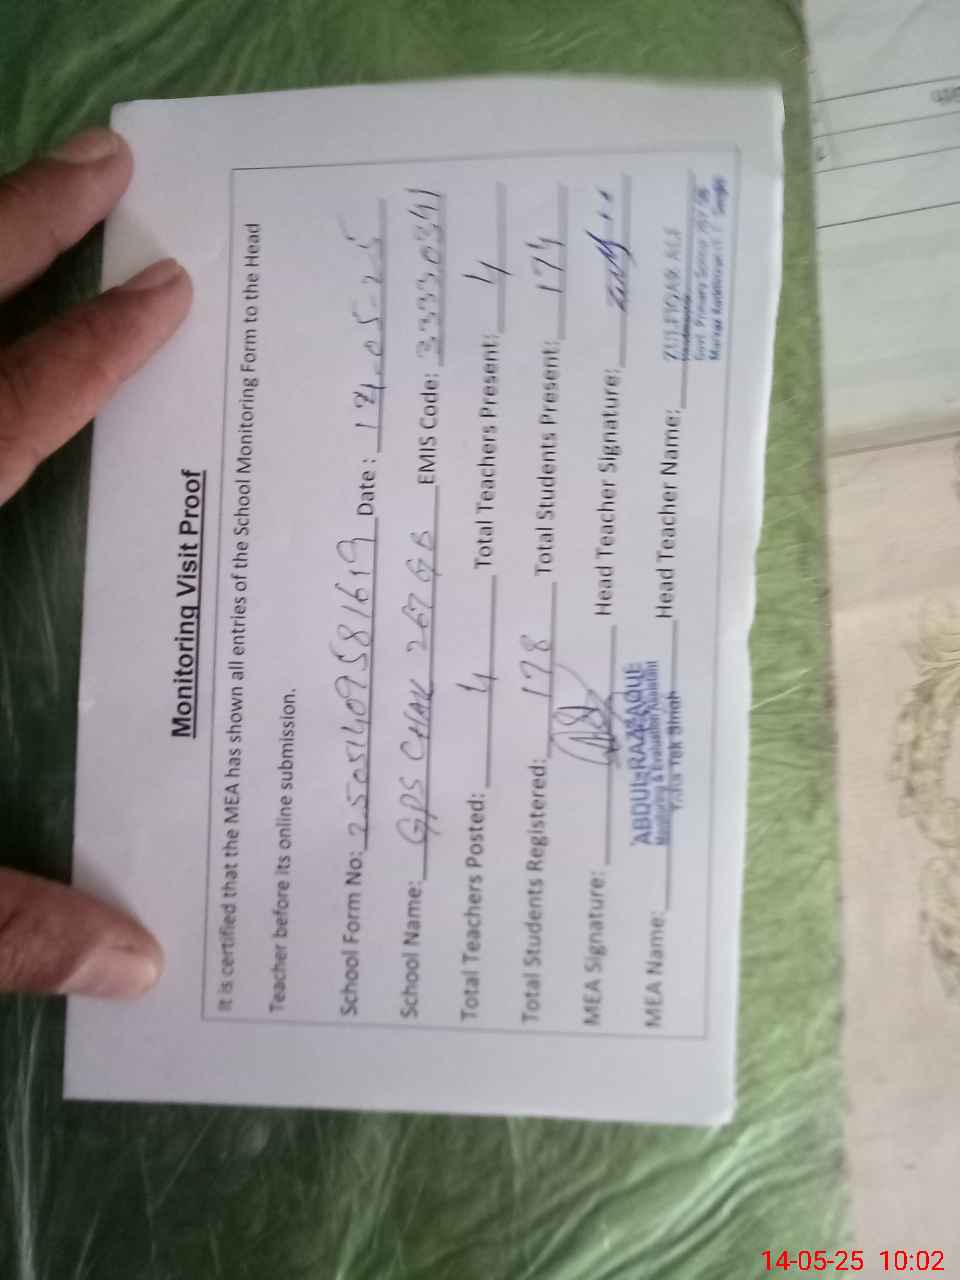 Monitoring Visit Proof
It is certified that the MEA has shown all entries of the School Monitoring Form to the Head
Teacher before its online submission.
School Form No: 25051409581619 Date : 14-05-25
School Name: GPS CHAK 267 GB EMIS Code: 33330341
Total Teachers Posted: 4 Total Teachers Present: 4
Total Students Registered: 178 Total Students Present: 174
MEA Signature: Head Teacher Signature:
MEA Name: ABDUL RAZZAQUE Head Teacher Name: ZULFIQAR ALI
Monitoring & Evaluation Assistant
Toba Tek Singh
Govt. Primary
Markaz
14-05-25 10:02